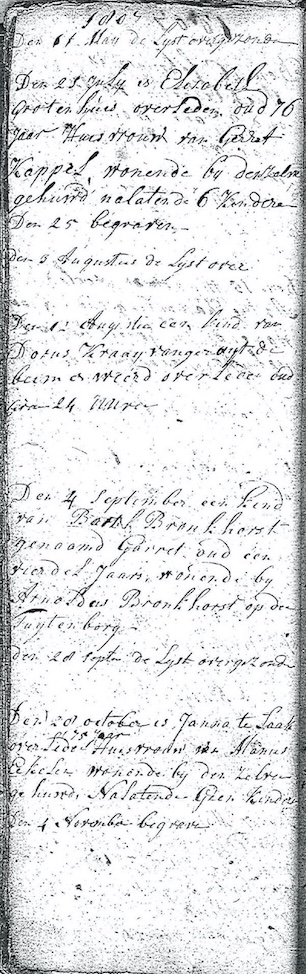 1807
Den 11 May de Lyst overgezonde
Den 21 July is Elisabeth
Grotenhuis overleden, oud 76
Jaar Huisvrouw van Gerret
Kappel, wonende by denzelve
gehuurd nalatende 6 Kindere
Den 25 begraven
den 5 Augustus de Lyst over
Den 12 Augustus een kind van
Dorus Kraayvanger op de
weerd overleden oud
24 uuren
Den 4 September een kind
van Barth Bronkhorst
genaamd Garret, oud een
vierdel Jaars, wonende by
Arnoldus Bronkhorst op de
Tuytenborg
den 28 Septe de Lyst overgezonde
Den 28 october is Janna te Laak
75 Jaar
overleden Huisvrouw van Manus
wonende by den Zelve
gehuurd, Nalatende Geen Kinder
Den 4 November begrave